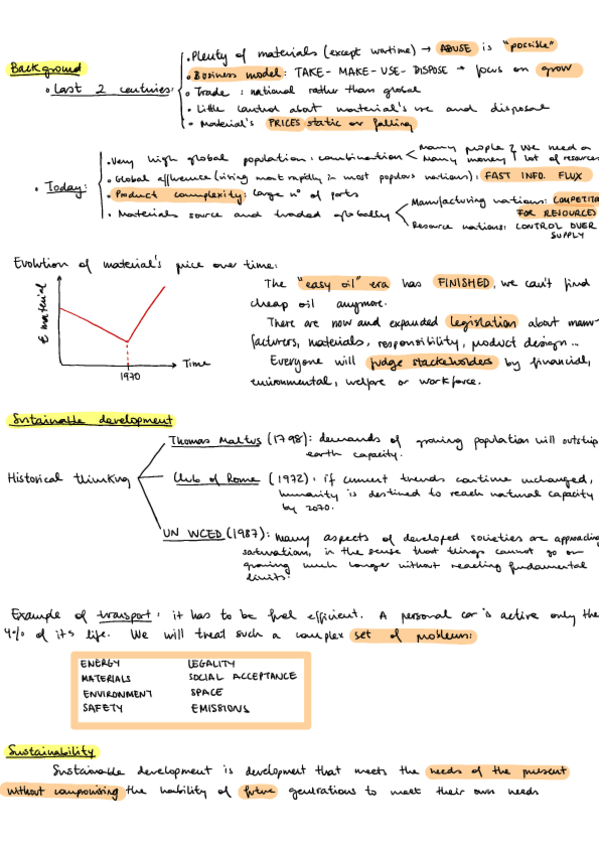 Background
• Last 2 centuries:
• Plenty of materials (except wartime) → ABUSE is "possible"
• Business model: TAKE- MAKE- USE- DISPOSE → focus on grow
• Trade: national rather than global
• Little control about material's use and disposal
• Material's PRICES static or falling
• Today:
• Very high global population: combination
many people } we need a
many money } lot of resources
• Global affluence (rising most rapidly in most populous nations): FAST INFO. FLUX
• Product complexity: large nº of parts
• Materials source and traded globally
Manufacturing nations: COMPETIT
FOR RESOURCES
Resource nations: CONTROL OVER
SUPPLY
Evolution of material's price over time:
€ material
Time
1970
The "easy oil" era has FINISHED, we can't find
cheap oil anymore.
There are now and expanded legislation about manu-
facturers, materials, responsibility, product design...
Everyone will judge stackeholders by financial,
environmental, welfare or workforce.
Sustainable development
Historical thinking
Thomas Maltus (1798): demands of growing population will outstrip
earth capacity.
Club of Rome (1972): if current trends continue unchanged,
humanity is destined to reach natural capacity
by 2070.
UN WCED (1987): many aspects of developed societies are approaching
saturation, in the sense that things cannot go on
growing much longer without reaching fundamental
limits.
Example of transport: it has to be fuel efficient. A personal car is active only the
4% of its life. We will treat such a complex set of problems:
ENERGY LEGALITY
MATERIALS SOCIAL ACCEPTANCE
ENVIRONMENT SPACE
SAFETY EMISSIONS
Sustainability
Sustainable development is development that meets the needs of the present
without compromising the hability of future generations to meet their own needs